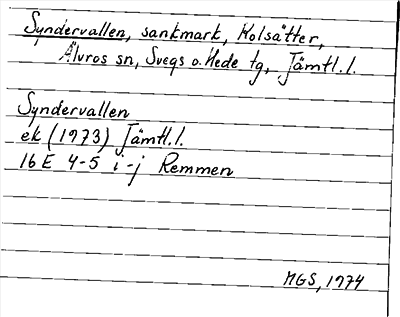 Syndervallen, sankmark, Kolsätter,
Älvros sn, Svegs o. Hede tg, Jämtl. l.
Syndervallen
ek (1973) Jämtl. l.
16 E 4-5 i-j Remmen
MGS, 1974